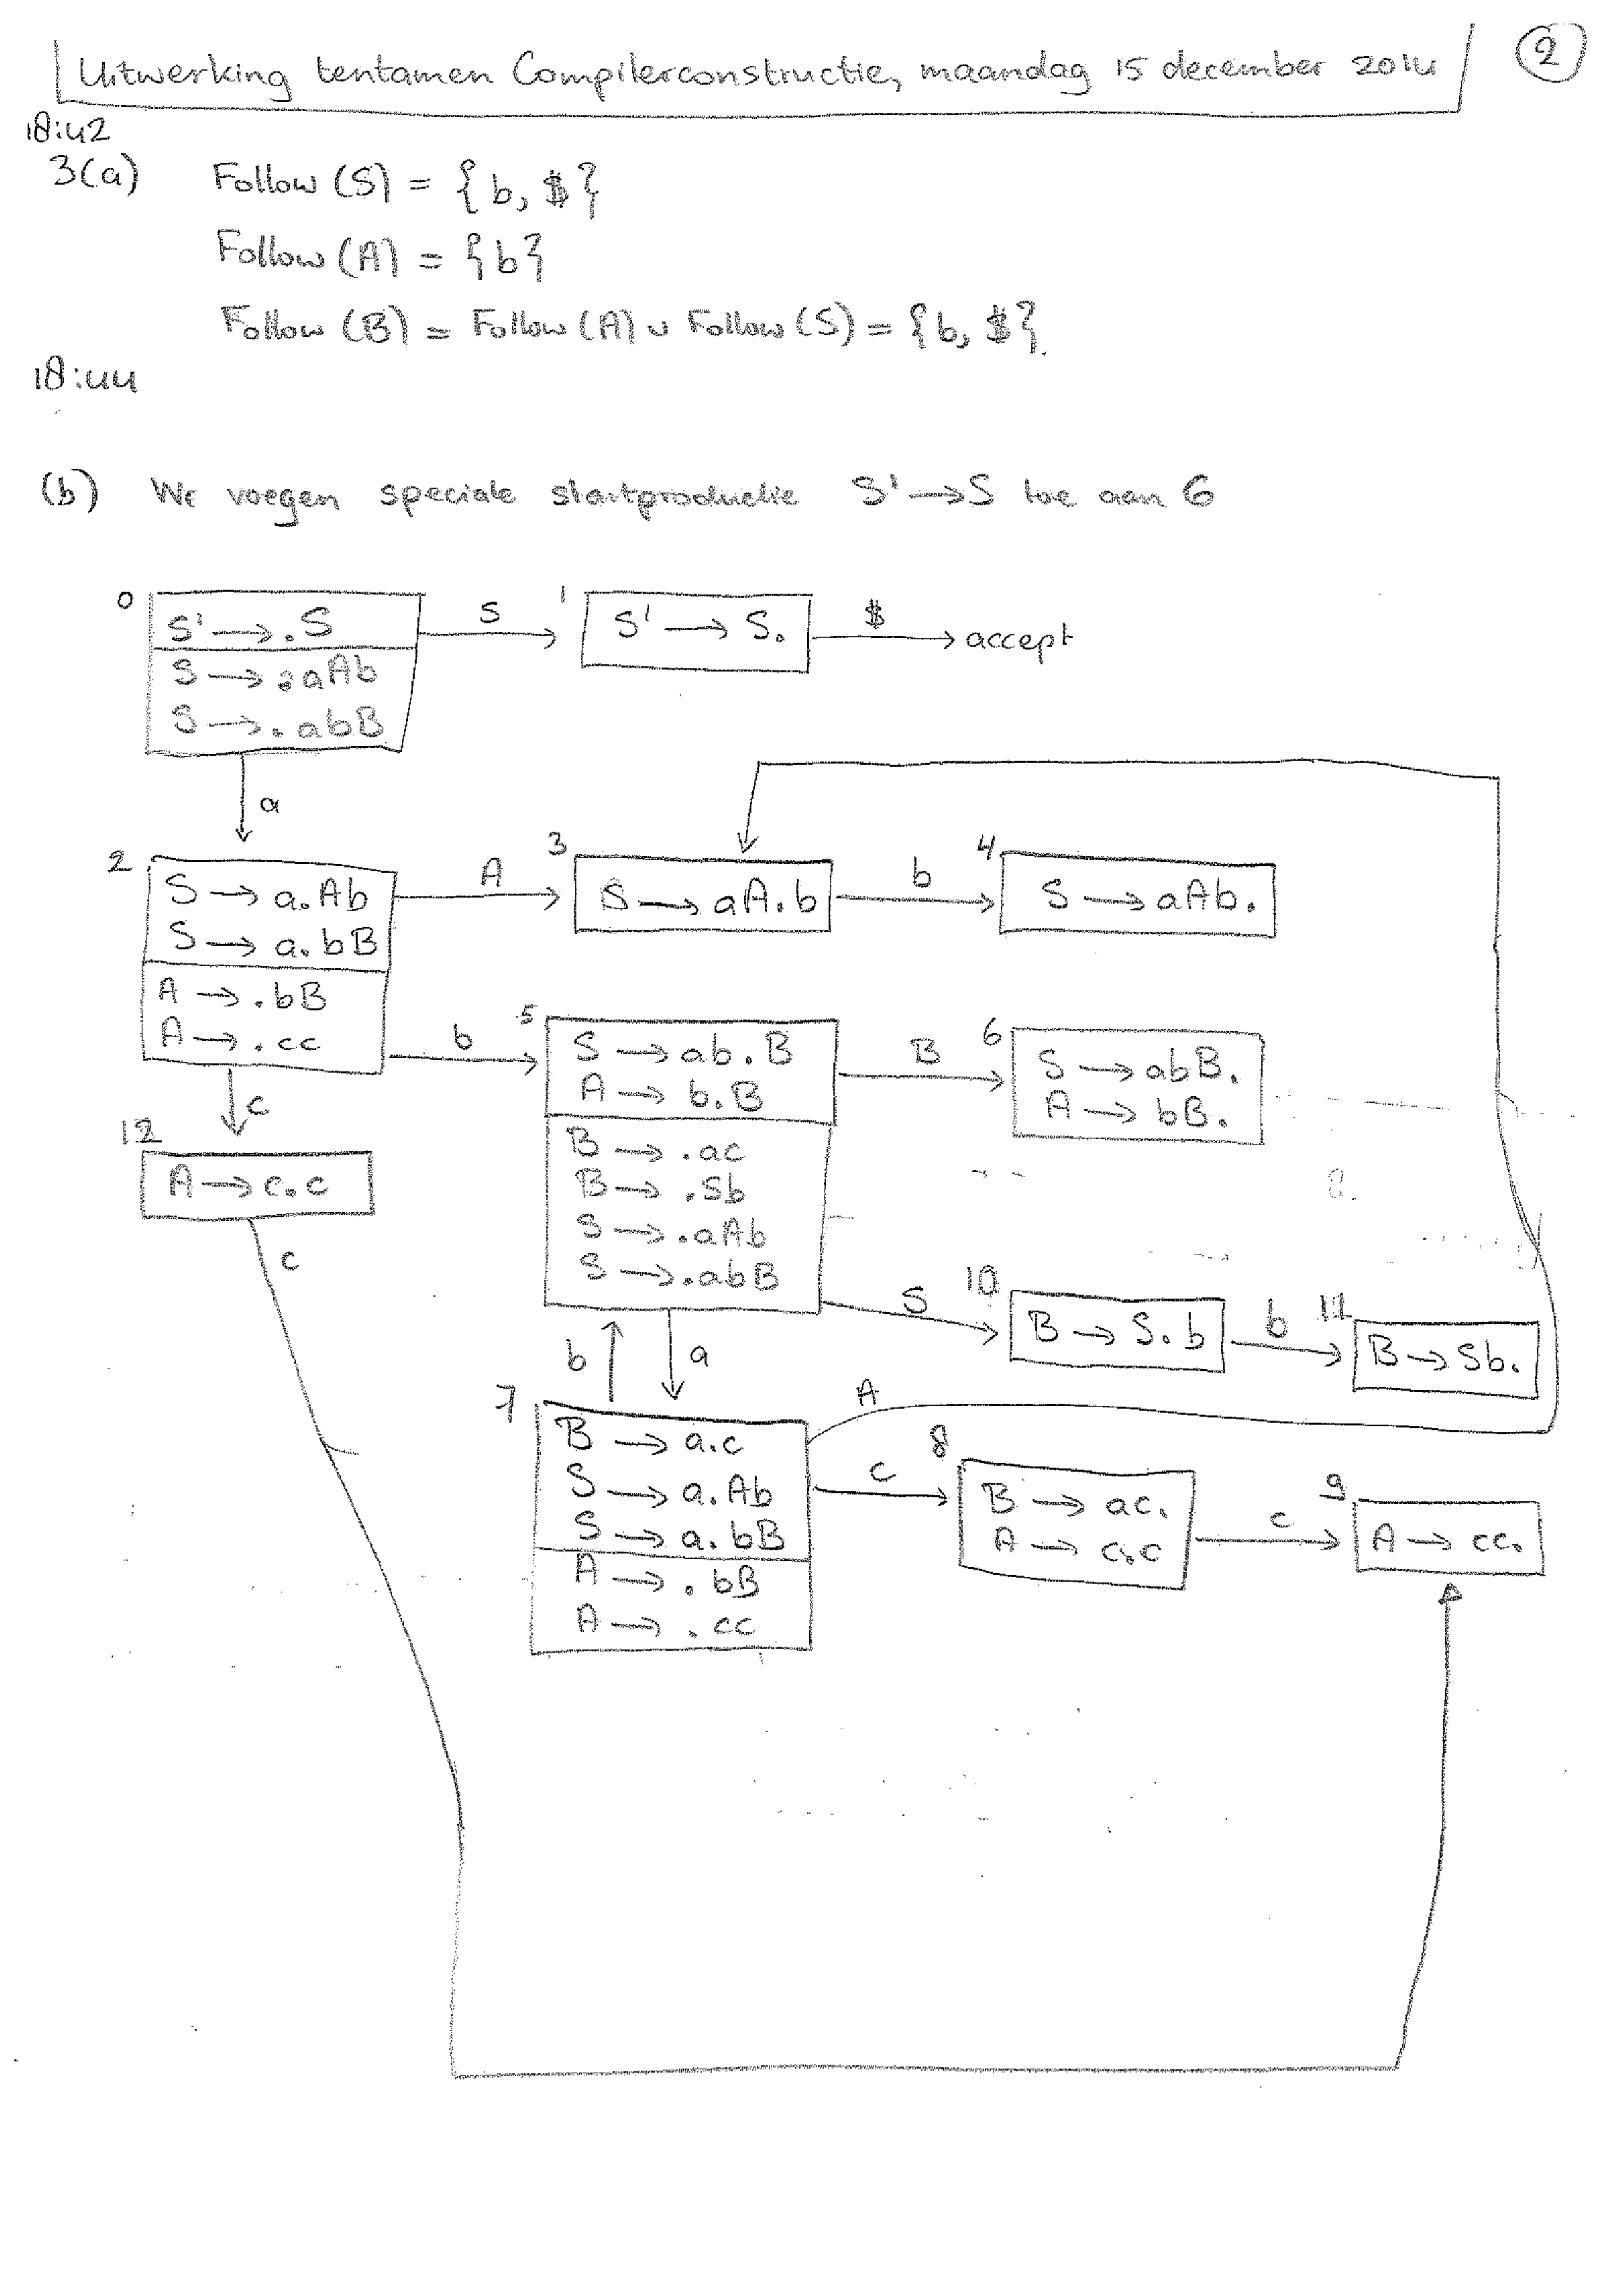 Uitwerking tentamen Compilerconstructie, maandag 15 december 2014
2
18:42
3(a) Follow (S) = {b, $}
Follow (A) = {b}
Follow (B) = Follow (A) ∪ Follow (S) = {b, $}.
18:44
(b) We voegen speciale startproductie S' → S toe aan G
0
S' → .S
S → .aAb
S → .abB
S
1
S' → S.
$
accept
a
2
S → a.Ab
S → a.bB
A → .bB
A → .cc
A
3
S → aA.b
b
4
S → aAb.
b
5
S → ab.B
A → b.B
B → .ac
B → .Sb
S → .aAb
S → .abB
B
6
S → abB.
A → bB.
c
12
A → c.c
c
S
10
B → S.b
b
11
B → Sb.
b
a
7
B → a.c
S → a.Ab
S → a.bB
A → .bB
A → .cc
A
c
8
B → ac.
A → c.c
c
9
A → cc.